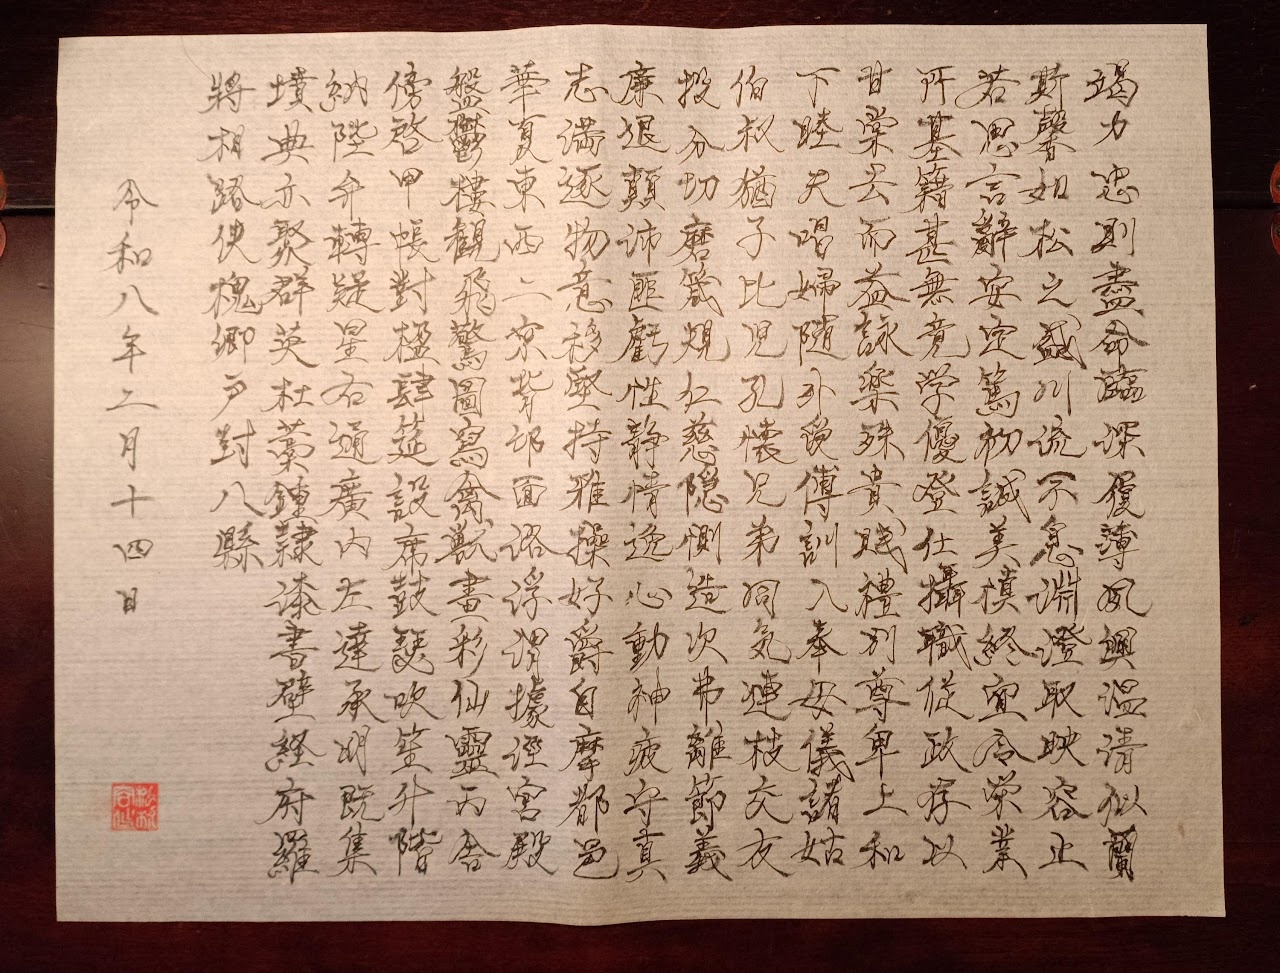 竭力忠則盡命臨深履薄夙興温清似蘭
斯馨如松之盛川流不息淵澄取映容止
若思言辭安定篤初誠美慎終宜令榮業
所基籍甚無竟学優登仕攝職従政存以
甘棠去而益詠楽殊貴賤禮別尊卑上和
下睦夫唱婦随外受傅訓入奉母儀諸姑
伯叔猶子比児孔懐兄弟同気連枝交友
投分切磨箴規仁慈隠惻造次弗離節義
廉退顛沛匪虧性静情逸心動神疲守真
志満逐物意移堅持雅操好爵自縻都邑
華夏東西二京背邙面洛浮渭據涇宮殿
盤鬱樓観飛驚圖寫禽獣畫彩仙靈丙舎
傍啓甲帳對楹肆筵設席鼓瑟吹笙升階
納陛弁轉疑星右通廣内左達承明既集
墳典亦聚群英杜稾鍾隷漆書壁経府羅
將相路侠槐卿戸封八縣
令和八年二月十四日